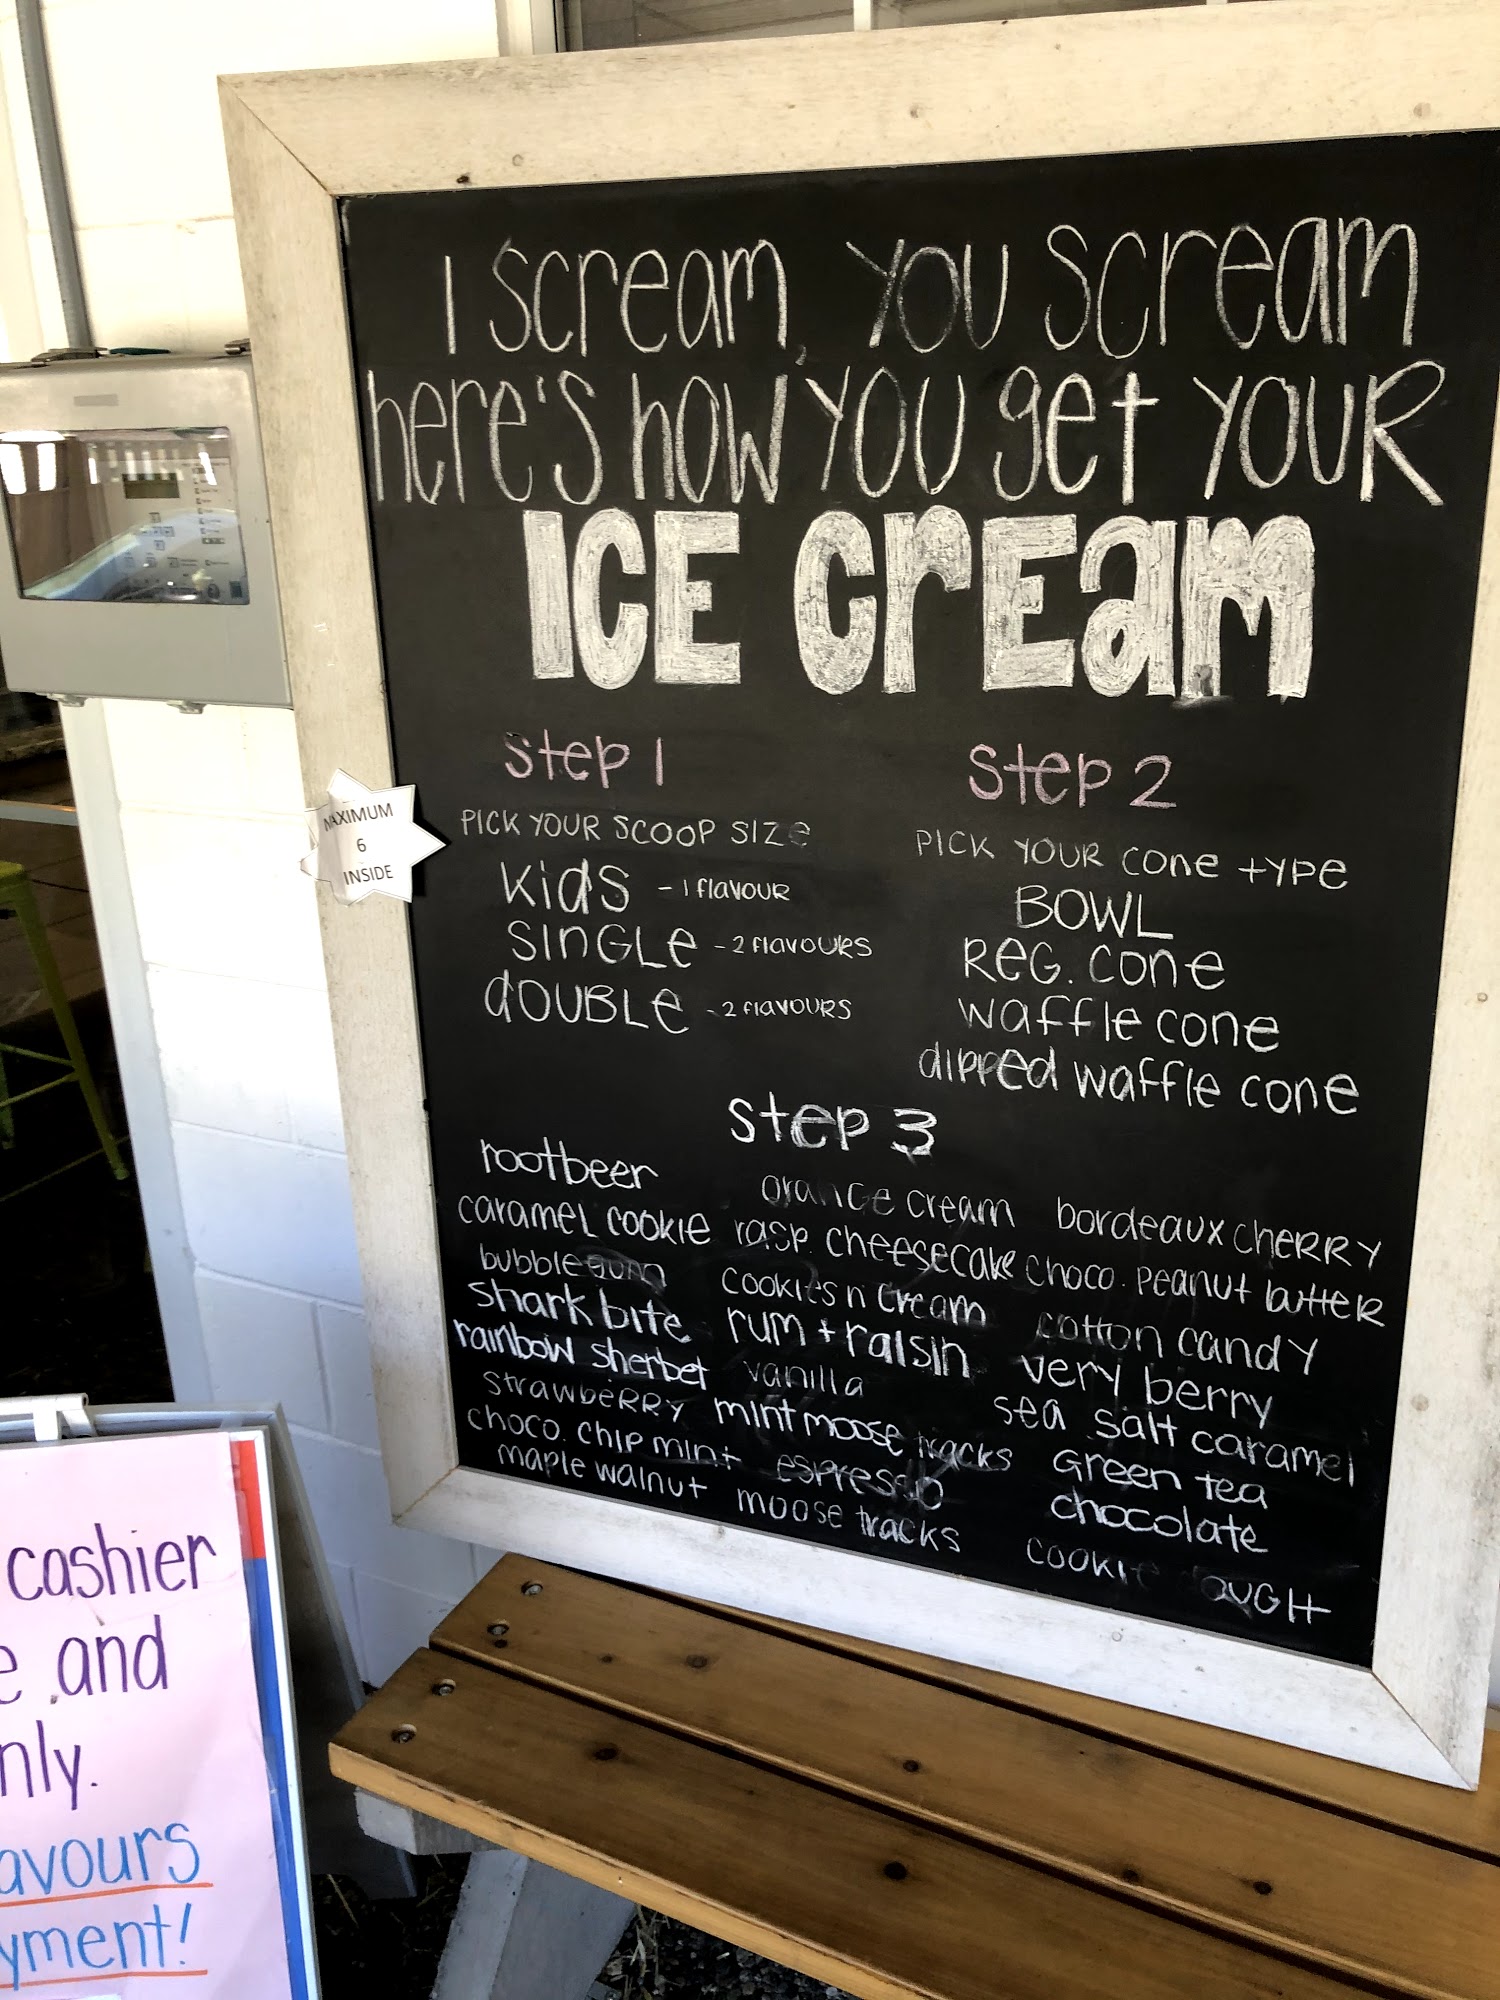 I scream, you scream
here's how you get your
ICE Cream
Step 1
PICK YOUR SCOOP SIZE
Kids - 1 flavour
SINGLE - 2 flavours
double - 2 flavours
Step 2
PICK YOUR cone type
BOWL
REG. cone
waffle cone
dipped waffle cone
Step 3
rootbeer
caramel cookie
bubblegum
shark bite
rainbow sherbet
strawberry
choco. chip mint
maple walnut
orange cream
rasp. cheesecake
cookies n cream
rum + raisin
vanilla
mint moose tracks
espresso
moose tracks
bordeaux cherry
choco. peanut butter
cotton candy
very berry
sea salt caramel
Green tea
chocolate
cookie ough
MAXIMUM
6
INSIDE
cashier
and
nly.
avours
yment!